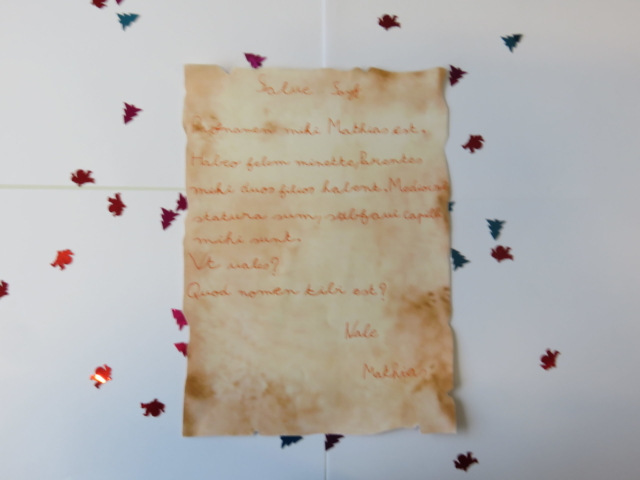 Salve
Praenomen mihi Mathias est.
Habeo felem minette, Parentes
mihi duos filios habent. Mediocri
statura sum, subflavi capilli
mihi sunt.
Vt uales?
Quod nomen tibi est?
Vale
Mathias